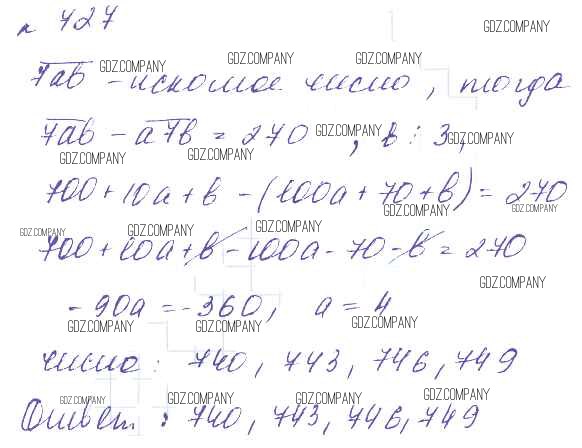 № 427
GDZ.COMPANY
7ab - искомое число, тогда
GDZ.COMPANY GDZ.COMPANY GDZ.COMPANY
7ab - a7b = 270, b ⋮ 3,
GDZ.COMPANY GDZ.COMPANY GDZ.COMPANY GDZ.COMPANY
700 + 10a + b - (100a + 70 + b) = 270
GDZ.COMPANY GDZ.COMPANY
700 + 10a + b - 100a - 70 - b = 270
GDZ.COMPANY GDZ.COMPANY GDZ.COMPANY
GDZ.COMPANY
- 90a = - 360, a = 4
GDZ.COMPANY GDZ.COMPANY GDZ.COMPANY
число: 740, 743, 746, 749
GDZ.COMPANY GDZ.COMPANY GDZ.COMPANY GDZ.COMPANY
Ответ: 740, 743, 746, 749